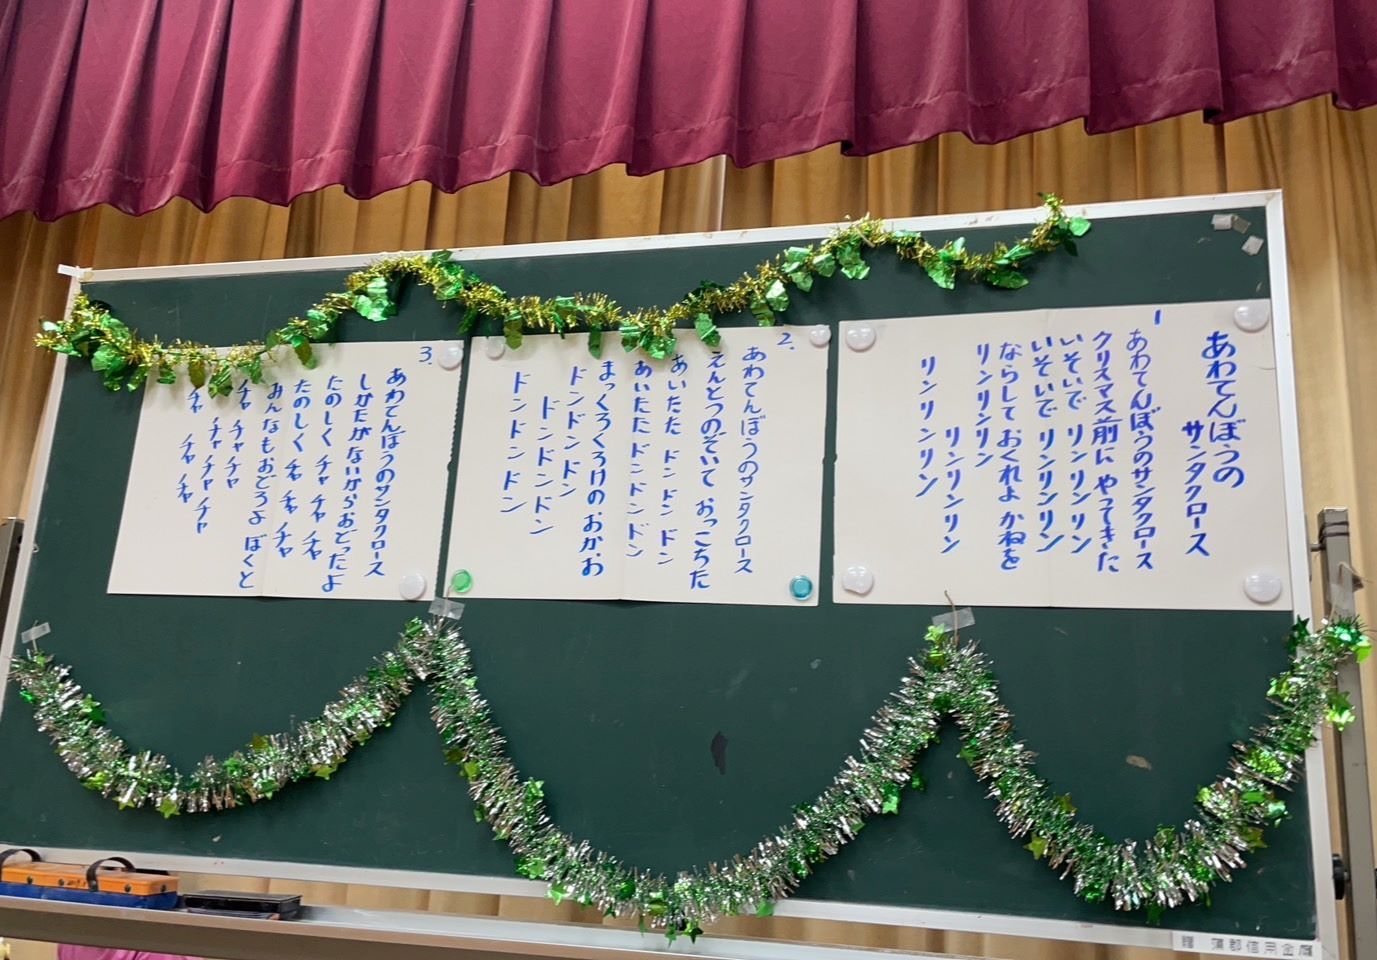 あわてんぼうの
サンタクロース
1
あわてんぼうのサンタクロース
クリスマス前に やってきた
いそいで リンリンリン
いそいで リンリンリン
ならしておくれよ かねを
リンリンリン
リンリンリン
リンリンリン
2.
あわてんぼうのサンタクロース
えんとつのぞいて おっこちた
あいたた ドンドンドン
あいたた ドンドンドン
まっくろくろけの、おかお
ドンドンドン
ドンドンドン
ドンドンドン
3.
あわてんぼうのサンタクロース
しかたがないからおどったよ
たのしく チャチャチャ
たのしく チャチャチャ
みんなもおどろよ ぼくと
チャチャチャ
チャチャチャ
チャチャチャ
贈 蒲郡信用金庫